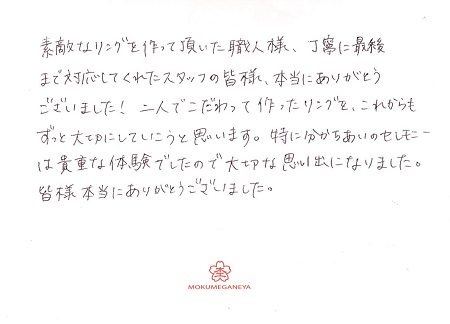 素敵なリングを作って頂いた職人様、丁寧に最後
まで対応してくれたスタッフの皆様、本当にありがとう
ございました！ 二人でこだわって作ったリングを、これからも
ずっと大切にしていこうと思います。特に分かちあいのセレモニー
は貴重な体験でしたので大切な思い出になりました。
皆様本当にありがとうございました。
MOKUMEGANEYA